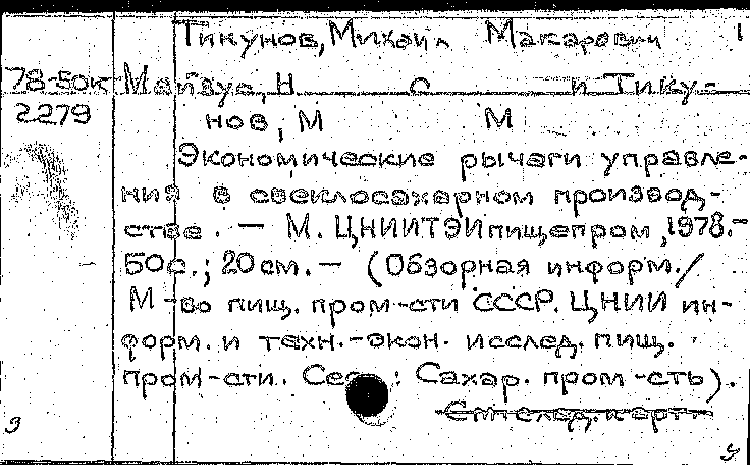 Тикунов, Михаил Макарович 1
78-50к Майзус, Н С и Тику-
2279 нов, М М
Экономические рычаги управле-
ния в свеклосахарном производ-
стве. — М. ЦНИИТЭИпищепром, 1978.-
50с.; 20 см. — (Обзорная информ./
М-во пищ. пром-сти СССР. ЦНИИ ин-
форм. и техн.-экон. исслед. пищ.
пром-сти. Сер. : Сахар. пром-сть).
См. след. карт.